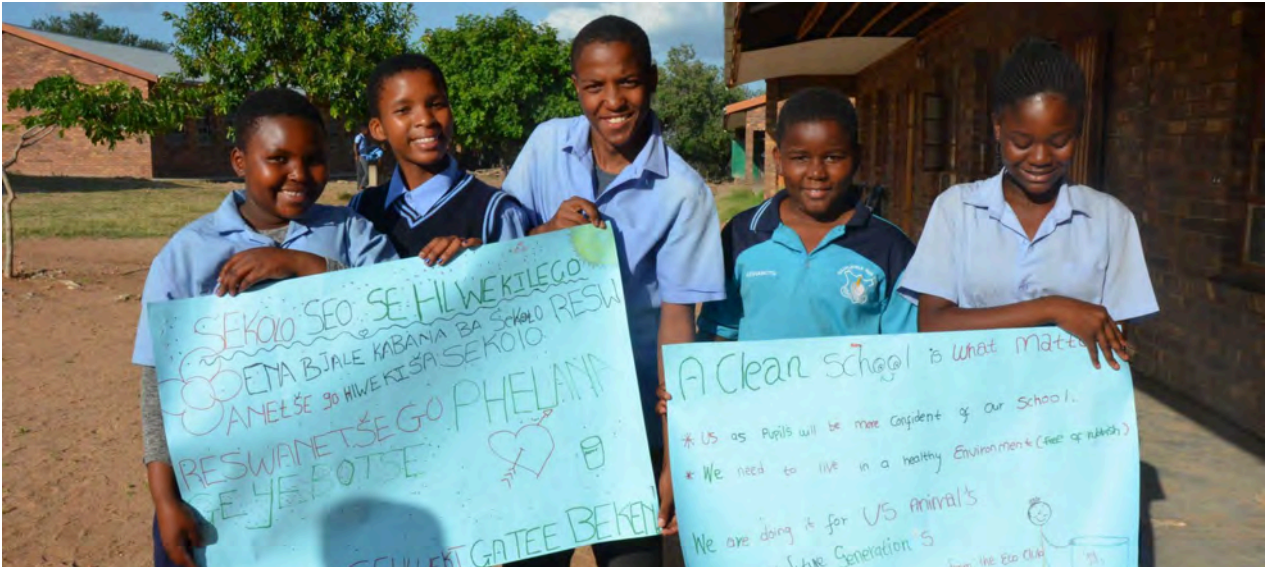 SEKOLO SEO SE HLWEKILEGO
ENA BJALE KABANA BA SEKOLO RESW
ANETŠE go HLWEKIŠA SEKOLO.
RESWANETŠE GO PHELANA
GE YE BOTSE
GATEE BEKEN
A Clean School is what matte
* US as Pupils will be more confident of our School.
* We need to live in a healthy Environment (free of rubbish)
We are doing it for US Animal's
Generation's
from the Eco Club